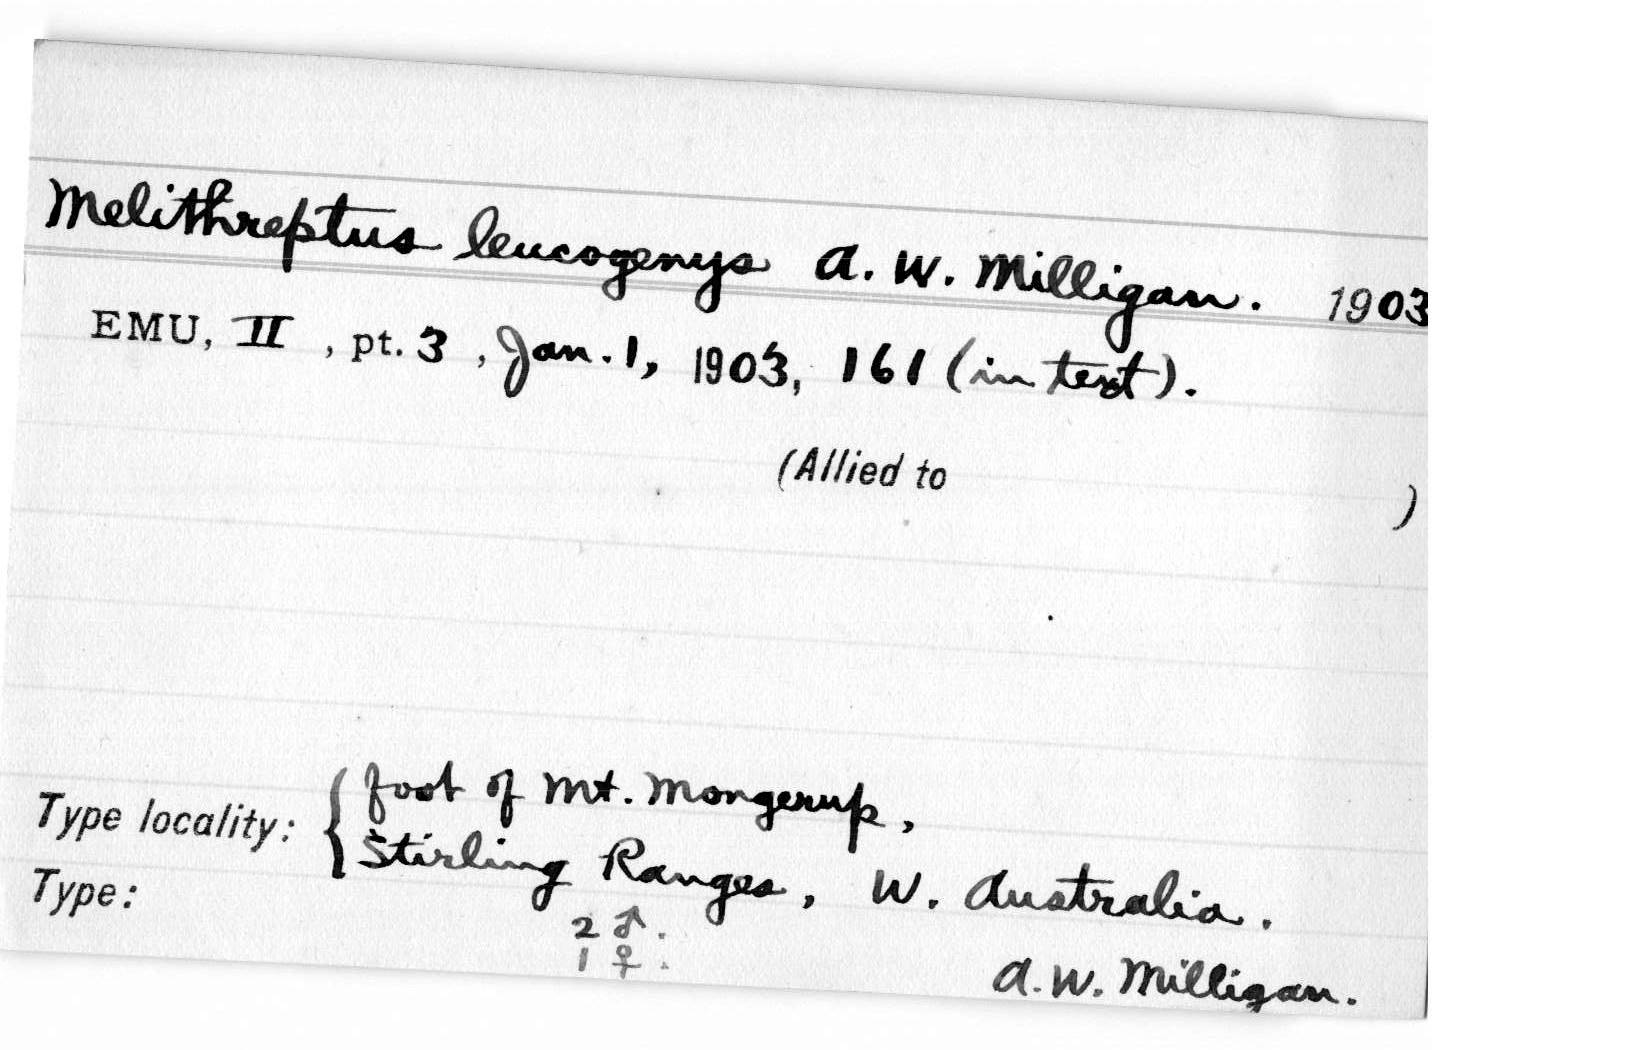 Melithreptus leucogenys A. W. Milligan. 1903
EMU, II, pt. 3, Jan. 1, 1903, 161 (in text).
(Allied to )
Type locality: { foot of Mt. Mongerup,
Stirling Ranges, W. Australia.
Type:
2 ♂.
1 ♀.
A. W. Milligan.